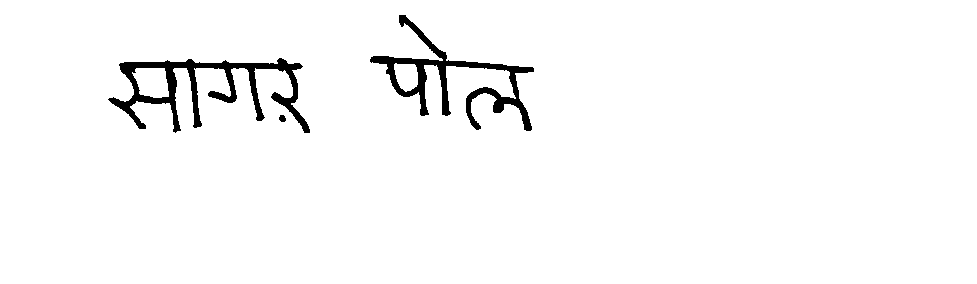 सागऱ पोल